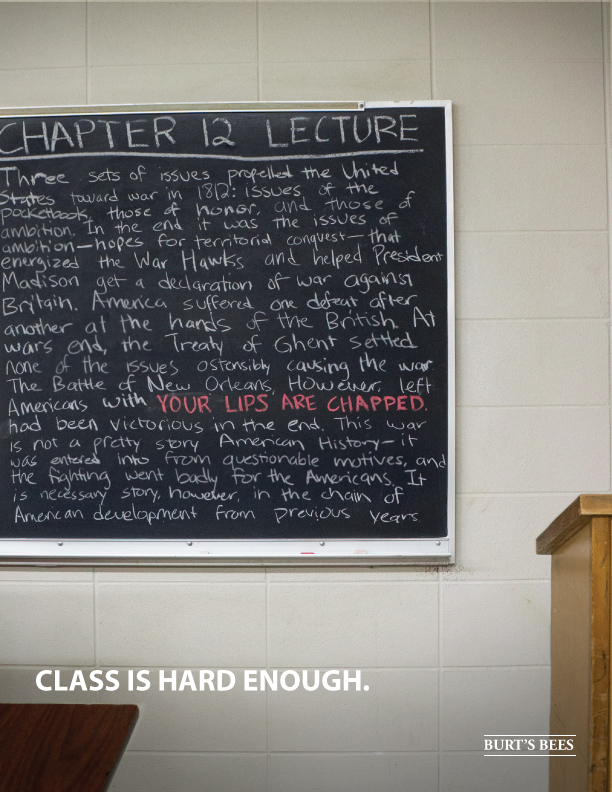 CHAPTER 12 LECTURE
Three sets of issues propelled the United
States toward war in 1812: issues of the
pocketbook, those of honor, and those of
ambition. In the end it was the issues of
ambition—hopes for territorial conquest—that
energized the War Hawks and helped President
Madison get a declaration of war against
Britain. America suffered one defeat after
another at the hands of the British. At
wars end, the Treaty of Ghent settled
none of the issues ostensibly causing the war
The Battle of New Orleans, However, left
Americans with YOUR LIPS ARE CHAPPED.
had been victorious in the end. This war
is not a pretty story American History—it
was entered into from questionable motives, and
the fighting went badly for the Americans. It
is necessary story, however, in the chain of
American development from previous years.
CLASS IS HARD ENOUGH.
BURT'S BEES